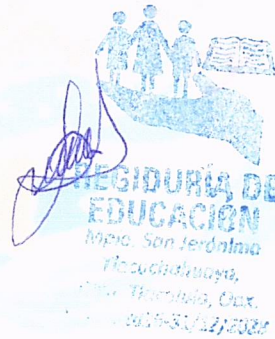 REGIDURÍA DE
EDUCACIÓN
Mpio. San Jerónimo
Tlacochahuaya,
Tlacolula, Oax.